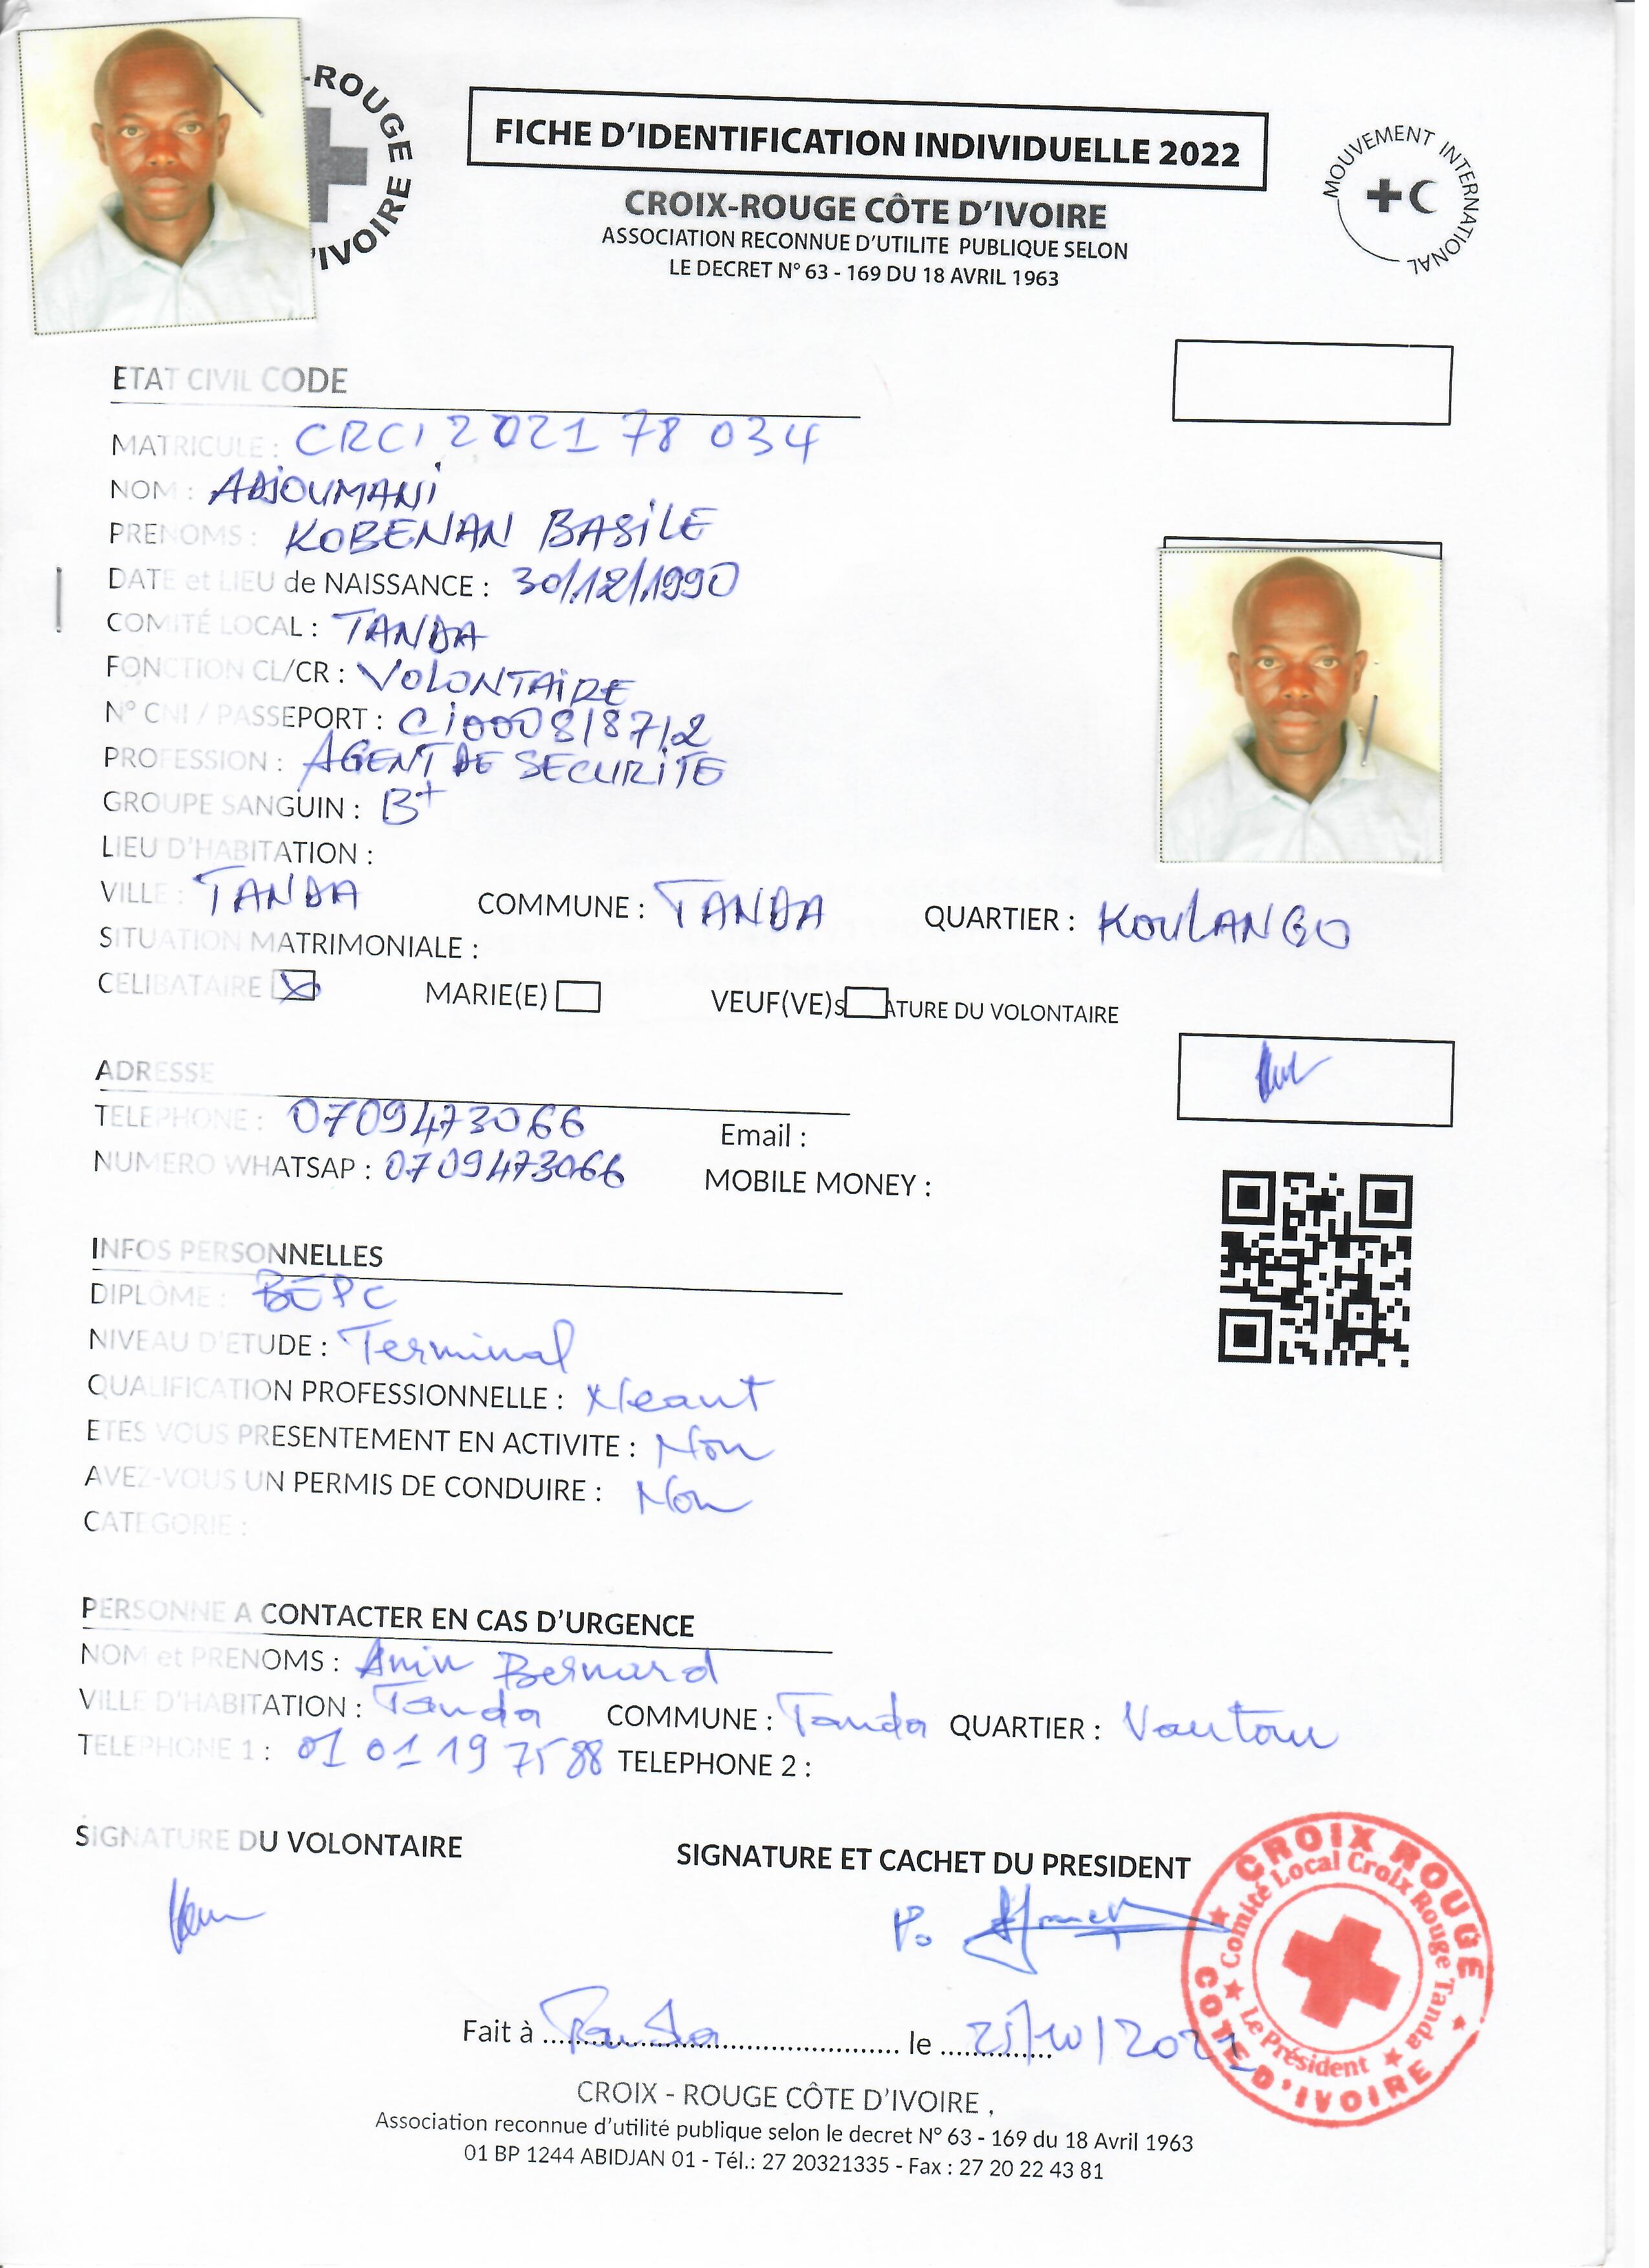 -ROUGE
'IVOIRE
FICHE D'IDENTIFICATION INDIVIDUELLE 2022
CROIX-ROUGE CÔTE D'IVOIRE
ASSOCIATION RECONNUE D'UTILITE PUBLIQUE SELON
LE DECRET N° 63 - 169 DU 18 AVRIL 1963
MOUVEMENT INTERNATIONAL
ETAT CIVIL CODE
MATRICULE : CRCI 2021 78 034
NOM : ADJOUMANI
PRENOMS : KOBENAN BASILE
DATE et LIEU de NAISSANCE : 30/12/1990
COMITÉ LOCAL : TANDA
FONCTION CL/CR : VOLONTAIRE
N° CNI / PASSEPORT :
PROFESSION : AGENT DE SECURITE
GROUPE SANGUIN : B+
LIEU D'HABITATION :
VILLE : TANDA COMMUNE : TANDA QUARTIER : KOULANGO
SITUATION MATRIMONIALE :
CELIBATAIRE MARIE(E) VEUF(VE)
SATURE DU VOLONTAIRE
ADRESSE
TELEPHONE : 0709473066 Email :
NUMERO WHATSAP : 0709473066 MOBILE MONEY :
INFOS PERSONNELLES
DIPLÔME : BEPC
NIVEAU D'ETUDE : Terminal
QUALIFICATION PROFESSIONNELLE : Neant
ETES VOUS PRESENTEMENT EN ACTIVITE : Non
AVEZ-VOUS UN PERMIS DE CONDUIRE : Non
CATEGORIE :
PERSONNE A CONTACTER EN CAS D'URGENCE
NOM et PRENOMS : Bernard
VILLE D'HABITATION : Tanda COMMUNE : Tanda QUARTIER :
TELEPHONE 1 : 01 01 19 75 88 TELEPHONE 2 :
SIGNATURE DU VOLONTAIRE SIGNATURE ET CACHET DU PRESIDENT
P.
CROIX ROUGE
COTE D'IVOIRE
Comité Local Croix Rouge Tanda
Le Président
Fait à Tanda le 25/10/2021
CROIX - ROUGE CÔTE D'IVOIRE ,
Association reconnue d'utilité publique selon le decret N° 63 - 169 du 18 Avril 1963
01 BP 1244 ABIDJAN 01 - Tél.: 27 20321335 - Fax : 27 20 22 43 81